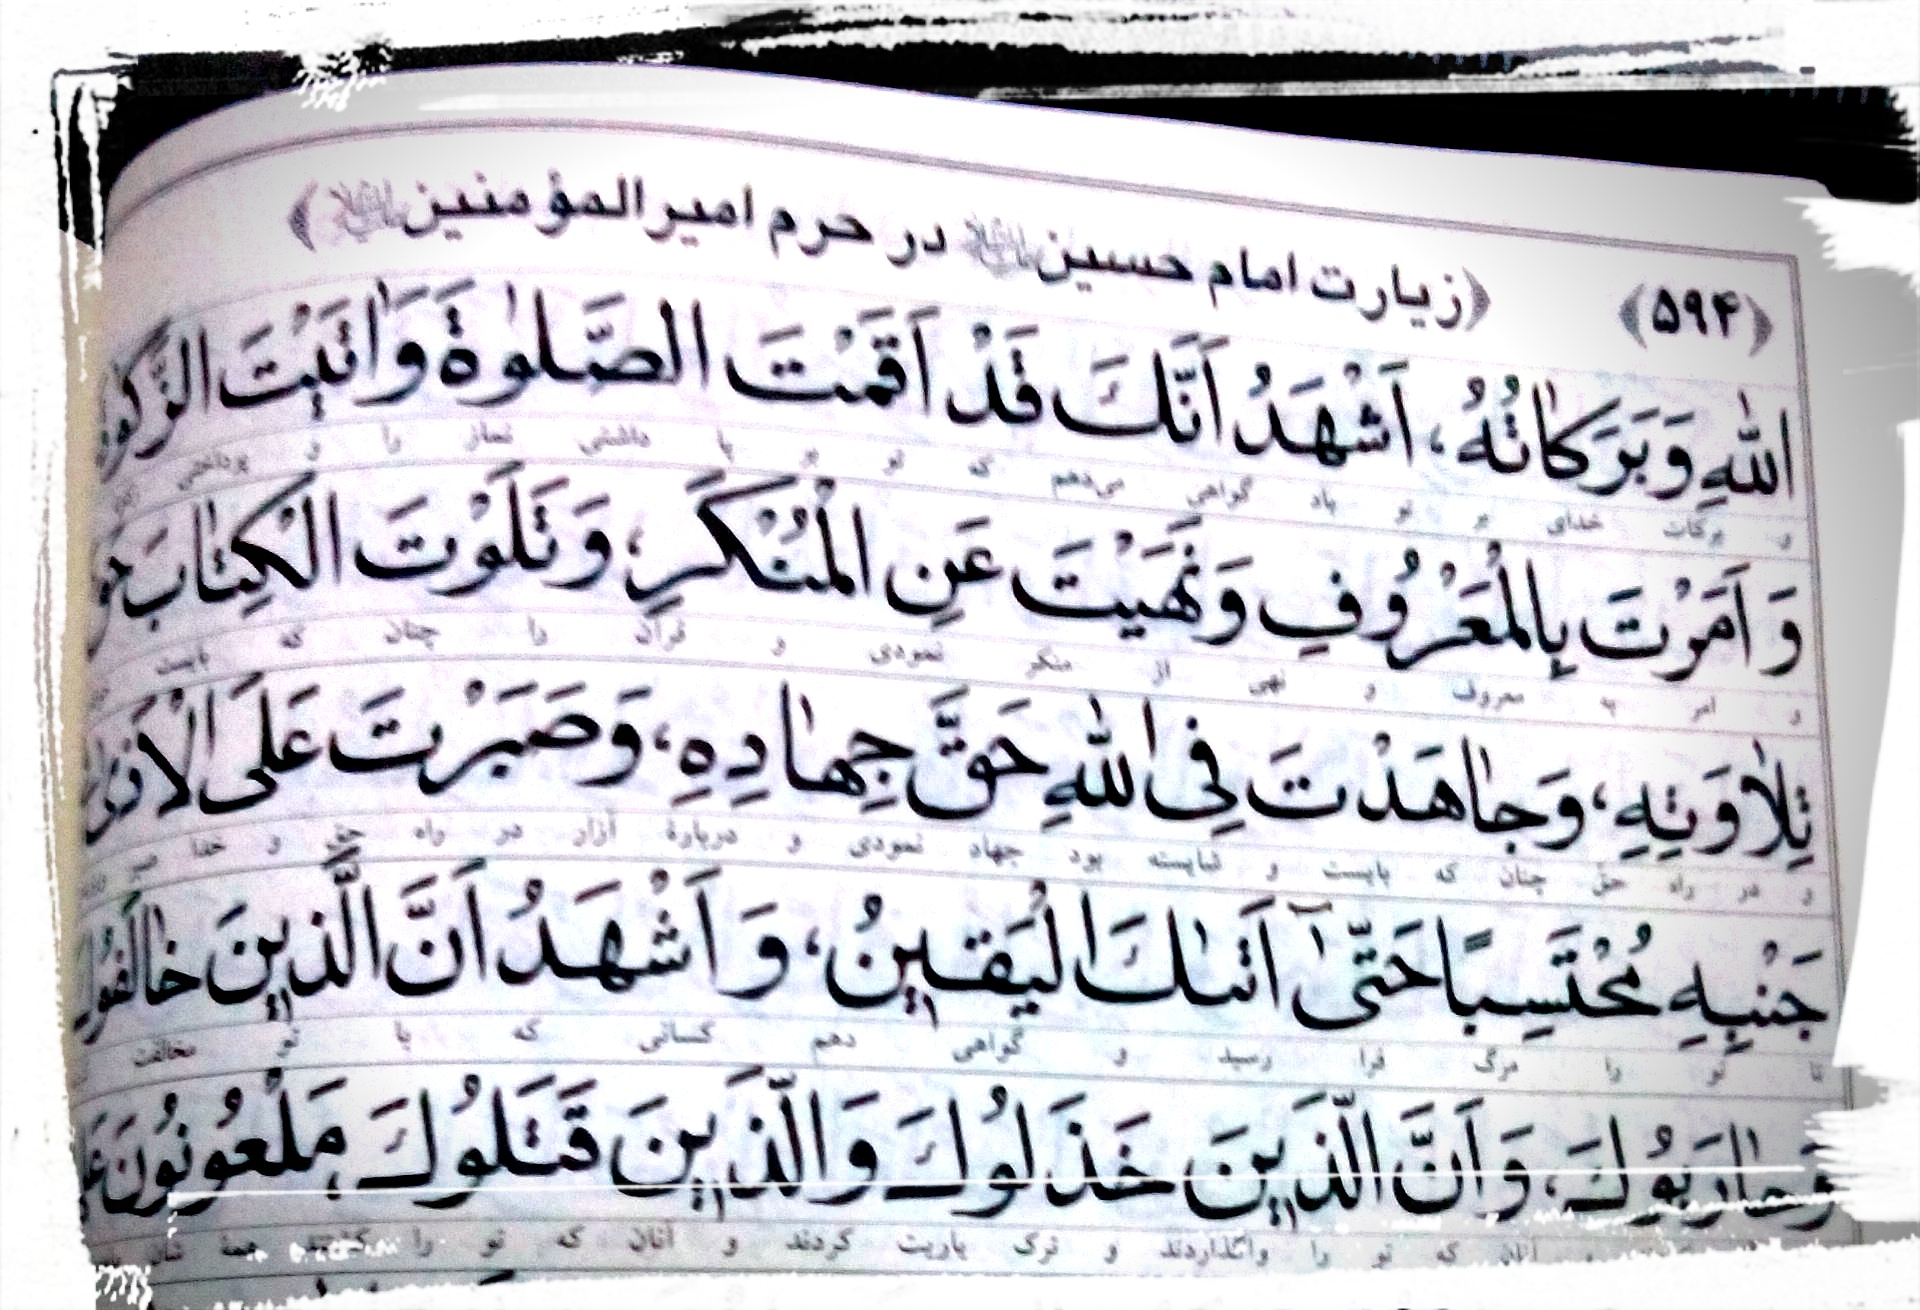 ﴿۵۹۴﴾ ﴿زیارت امام حسین در حرم امیرالمؤمنین﴾
اللّٰهِ وَبَرَكاتُهُ، اَشْهَدُ اَنَّكَ قَدْ اَقَمْتَ الصَّلوٰةَ وَاٰتَيْتَ الزَّكوٰةَ
و برکات خدای بر تو باد گواهی می‌دهم که تو بر پا داشتی نماز را و پرداختی
وَ اَمَرْتَ بِالْمَعْرُوفِ وَنَهَيْتَ عَنِ الْمُنْكَرِ، وَ تَلَوْتَ الْكِتابَ
و امر به معروف و نهی از منکر نمودی و قرآن را چنان که بایست
تِلاوَتِهِ، وَجاهَدْتَ فِى اللّٰهِ حَقَّ جِهادِهِ، وَصَبَرْتَ عَلَى الْاَذىٰ
و در راه حق چنان که بایست و شایسته بود جهاد نمودی و دربارهٔ آزار در راه حق و خدا
جَنْبِهِ مُحْتَسِبًا حَتّىٰٓ اَتىٰكَ الْيَقينُ، وَ اَشْهَدُ اَنَّ الَّذينَ خالَفُوكَ
تا تو را مرگ فرا رسید و گواهی دهم کسانی که با تو مخالفت
وَحارَبُوكَ، وَ اَنَّ الَّذينَ خَذَلُوكَ وَ الَّذينَ قَتَلُوكَ مَلْعُونُونَ
آنان که تو را واگذاردند و ترک یاریت کردند و آنان که تو را کشتند همهٔ